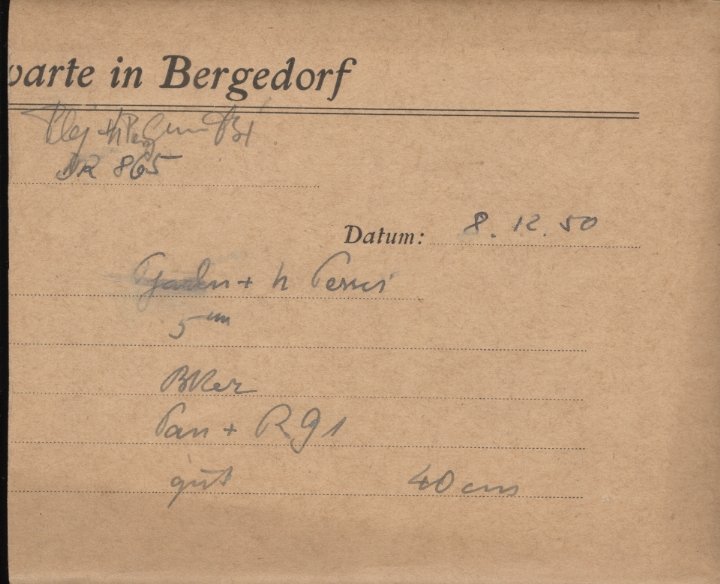 warte in Bergedorf
DR 865
Datum: 8. 12. 50
+ h Persei
5 m
BKer
Pan + RG1
gut 40 cm